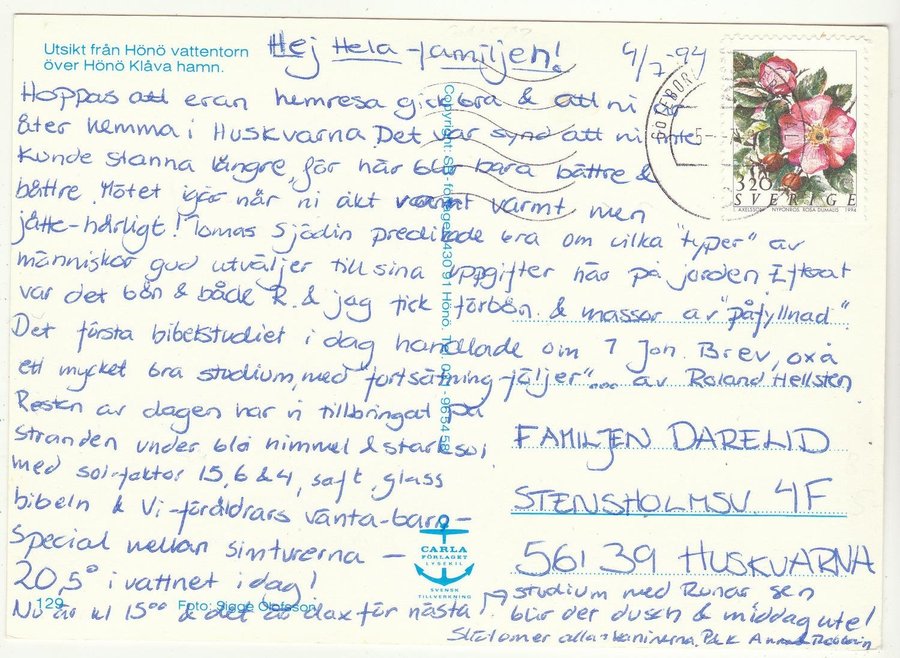 Utsikt från Hönö vattentorn
över Hönö Klåva hamn.
Hej Hela familjen!
4/7-94
Hoppas att eran hemresa gick bra & att ni är
åter hemma i Huskvarna. Det var synd att ni inte
kunde stanna längre, för här blir bara bättre &
bättre. Mötet igår när ni åkt varmt men
jätte-härligt! Tomas Sjödin predikade bra om vilka "typer" av
människor gud utväljer till sina uppgifter här på jorden. Efteråt
var det bön & både R. & jag fick förbön & massor av "påfyllnad".
Det första bibelstudiet i dag handlade om 1 Joh. Brev, oxå
ett mycket bra studium, med "fortsättning-följer"... av Roland Hellsten
Resten av dagen har vi tillbringat på
stranden under blå himmel & stark sol
med sol-faktor 15, 6 & 4, saft, glass
bibeln & Vi-föräldrars vänta-barn-
special mellan simturerna –
20,5° i vattnet idag!
Nu är kl 15⁰⁰ & det är dax för nästa
studium med Runar sen
blir det dusch & middag ute!
Slut omer alla kaninerna. P&K
FAMILJEN DARELID
STENSHOLMSV 4F
561 39 HUSKVARNA
CARLA
FÖRLAGET
LYSEKIL
SVENSK
TILLVERKNING
129
Foto: Sigge Olofsson
GÖTEBORG
5-
3.20
SVERIGE
L. AXELSSON NYPONROS ROSA DUMALIS 1994